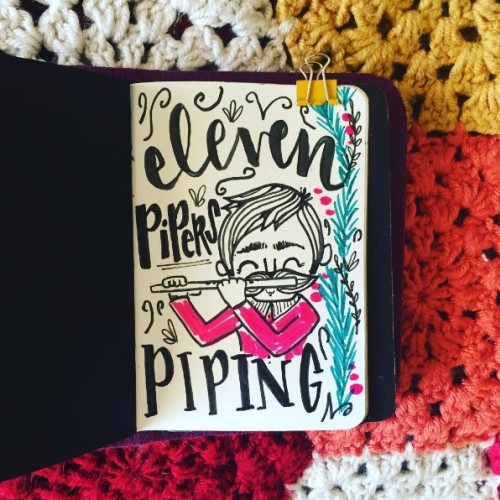 eleven
PiPeRs
PIPING